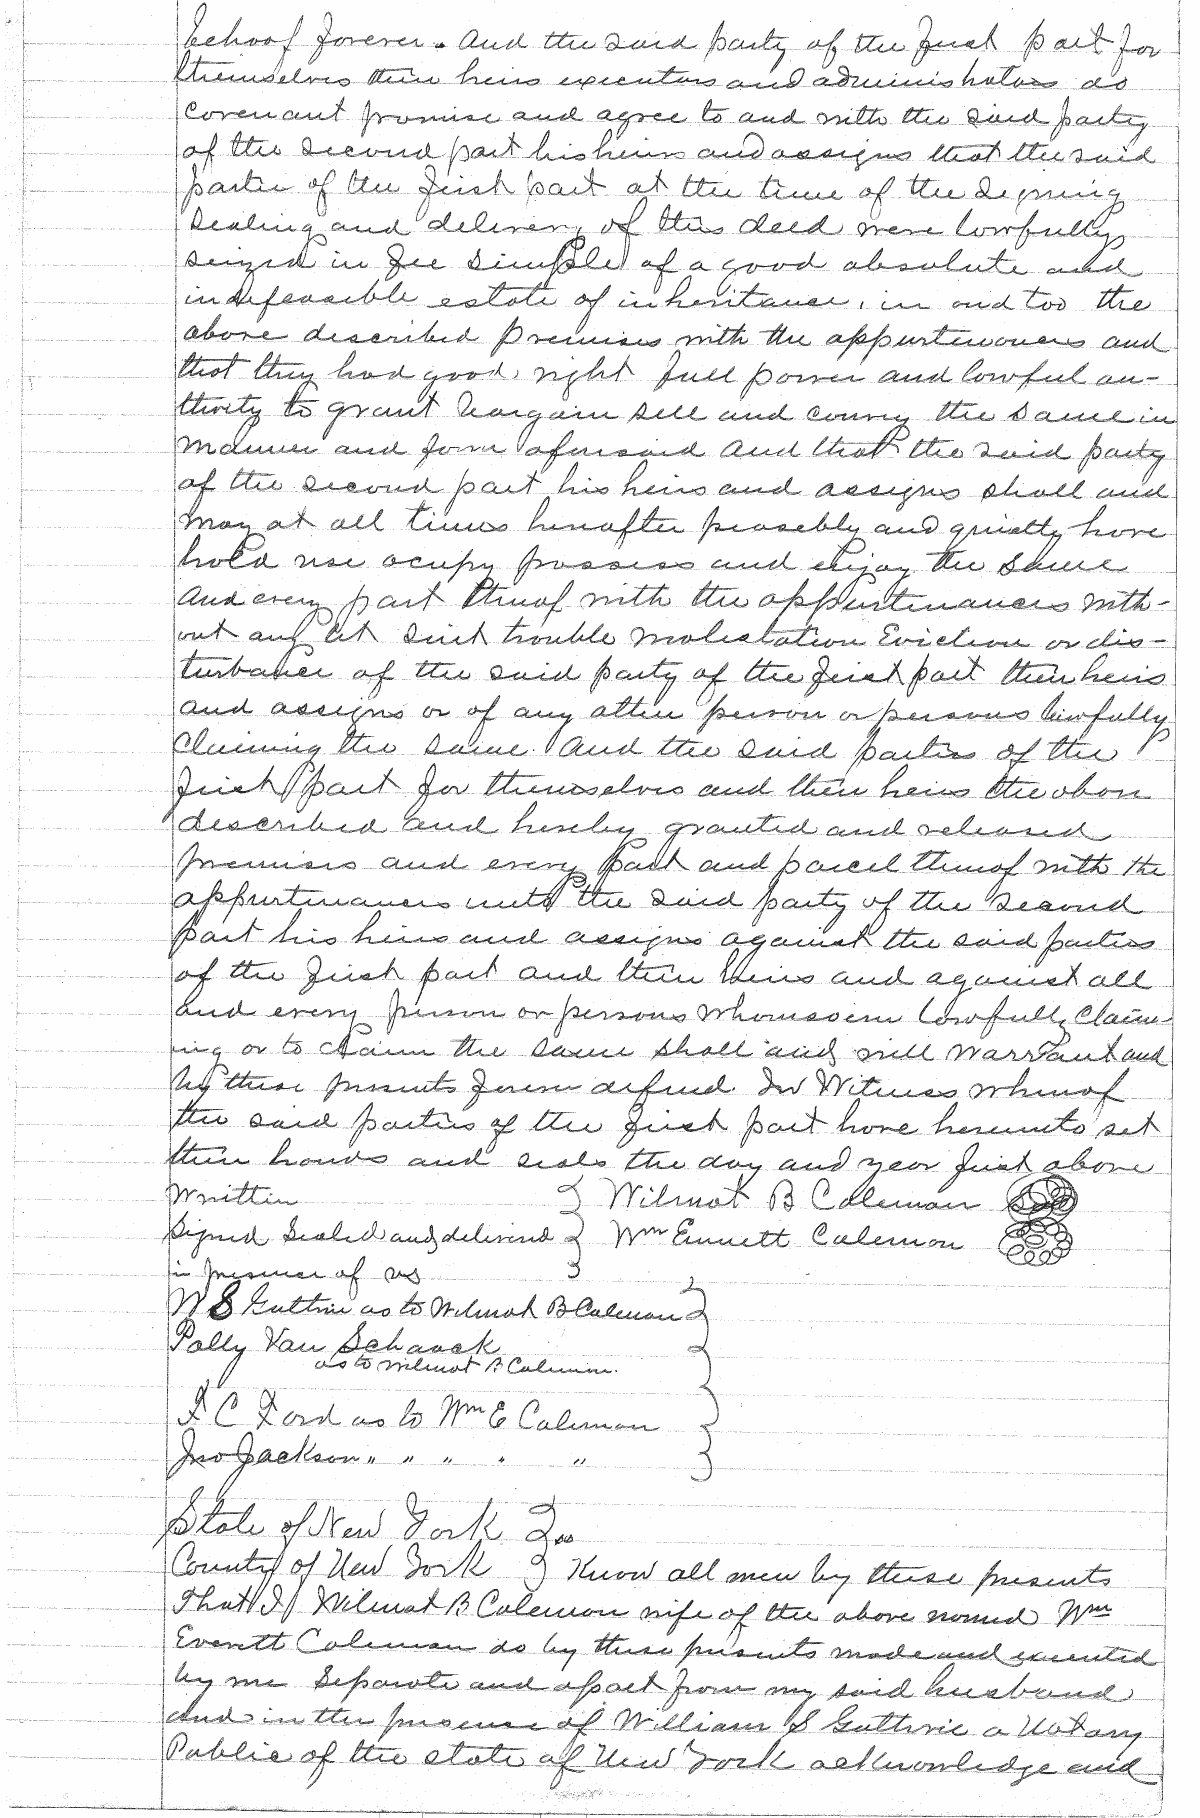 behoof forever. And the said party of the first part for
themselves their heirs executors and administrators do
covenant promise and agree to and with the said party
of the second part his heirs and assigns that the said
partie of the first part at the time of the signing
sealing and delivery of this deed were lawfully
seized in fee simple of a good absolute and
indefeasible estate of inheritance, in and too the
above described premises with the appurtenances and
that they had good right full power and lawful au-
thority to grant bargain sell and convey the same in
manner and form aforesaid And that the said party
of the second part his heirs and assigns shall and
may at all times hereafter peasebly and quietly have
hold use ocupy possess and enjoy the same
And every part thereof with the appurtenances with-
out any let suit trouble molestation Eviction or dis-
turbance of the said party of the first part their heirs
and assigns or of any other person or persons lawfully
claiming the same. And the said parties of the
first part for themselves and their heirs the above
described and hereby granted and released
premises and every part and parcel thereof with the
appurtenances unto the said party of the second
part his heirs and assigns against the said parties
of the first part and their heirs and against all
and every person or persons whomsoever lawfully claim-
ing or to claim the same shall and will warrant and
by these presents forever defend. In Witness whereof
the said parties of the first part have hereunto set
their hands and seals the day and year first above
written Wilmot B Coleman Seal
Signed Sealed and delivered Wm Everett Coleman
in presence of us
W S Guthrie as to Wilmot B Coleman
Polly Van Schaack
as to Wilmot B Coleman.
F C Ford as to Wm E Coleman
Jno Jackson " " " " "
State of New York ss
County of New York Know all men by these presents
That I Wilmot B Coleman wife of the above named Wm
Everett Coleman do by these presents made and executed
by me separate and apart from my said husband
and in the presence of William S Guthrie a Notary
Public of the state of New York acknowledge and